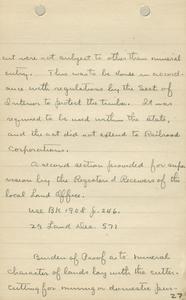 cut were not subject to other than mineral
entry. This was to be done in accord-
ance with regulations by the Sect of
Interior to protect the timber. It was
required to be used within the state,
and the act did not extend to Railroad
Corporations.
A second section provided for super
vision by the Registers & Receivers of the
local Land Office.
see BK 1908 p. 246.
29 Land Dec. 571
Burden of Proof as to mineral
character of lands lay with the cutter.
Cutting for mining or domestic pur-
27